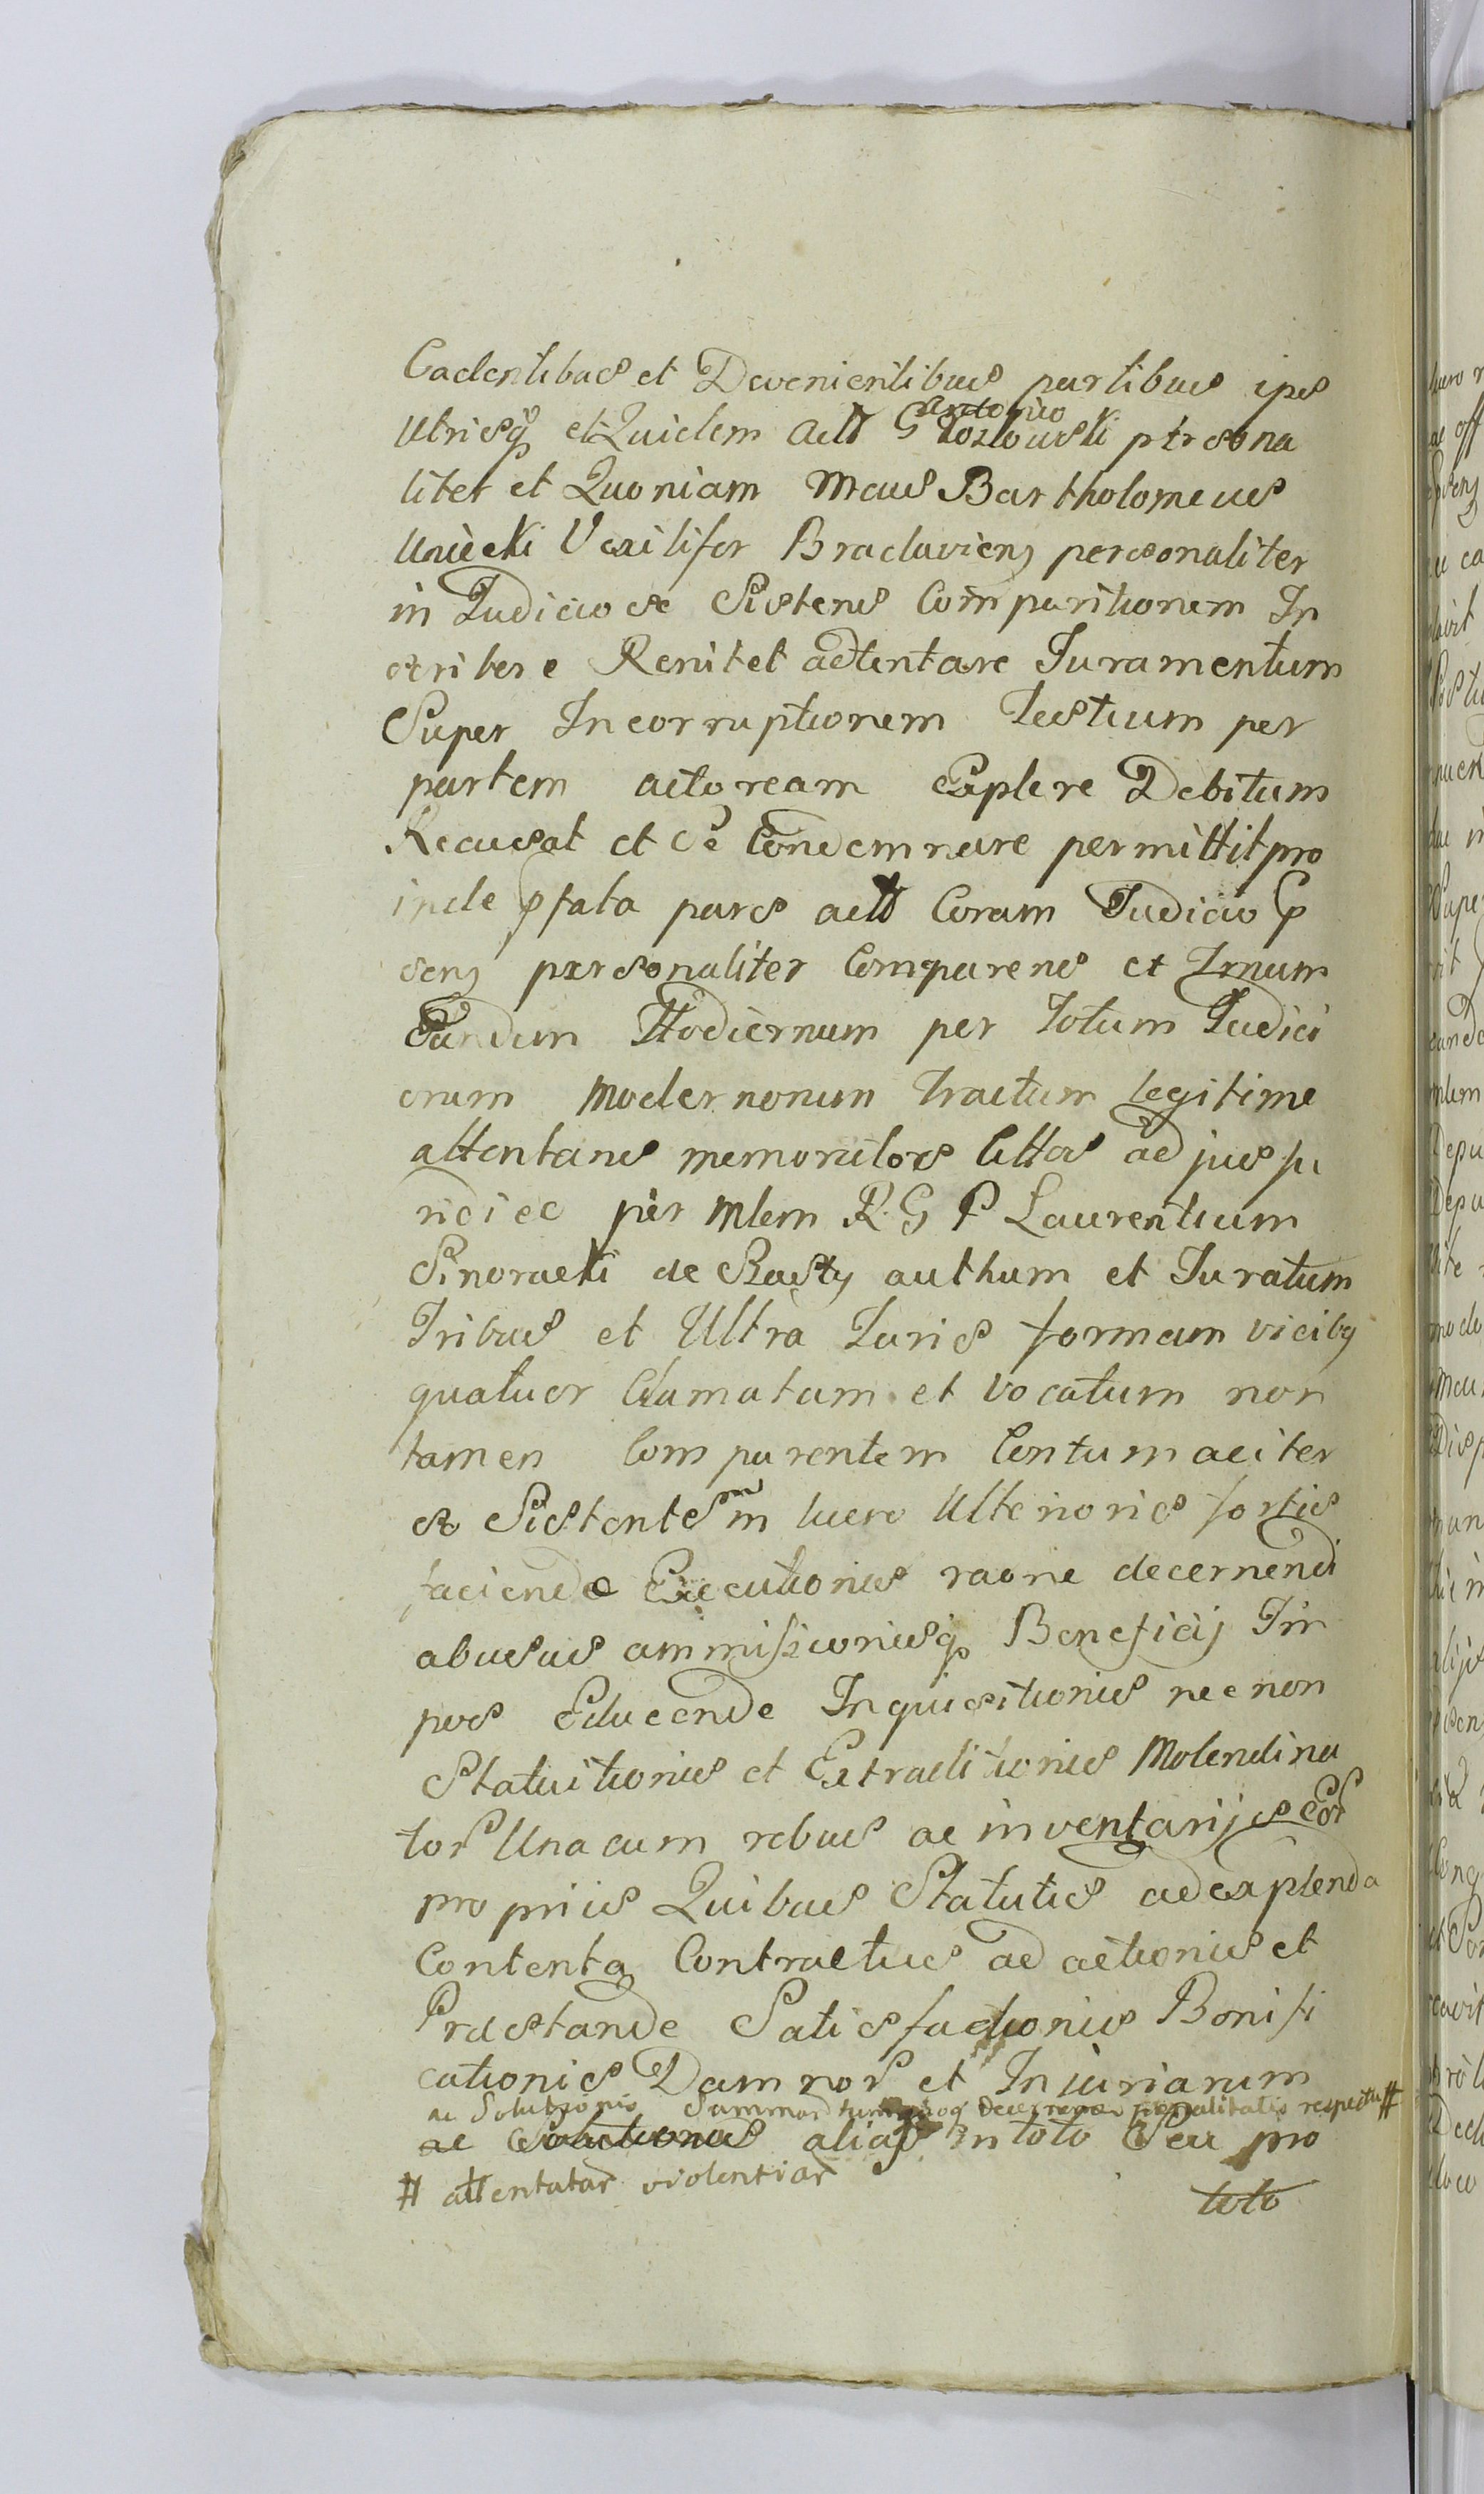 Cadentibus et Devenientibus partibus ips
Utrisq et Quidem Act G Antonio Kozlowski persona
liter et Quoniam Mcus Bartholomeus
Uniecki Vexilifer Braclaviens personaliter
in Judicio se Sistens Comparitionem In
scribere Renitet adtentare Juramentum
Super Incorruptionem Testium per
partem actoream Explere Debitum
Recusat et se Condemnare permittit pro
inde pfata pars act Coram Judicio p
sens personaliter Comparens et Trnum
Eundem Hodiernum per Totum Judici
orum modernorum Tractum legitime
attentans memoratos Cittos ad jus ju
ridice per Mlem R. G P Laurentium
Sinoracki de Busty authum et Juratum
Tribus et Ultra Juris formam vicibq
quatuor Clamatum et vocatum non
tamen Comparentem Contumaciter
se Sistentem in lucro Ulterioris fortis
faciende Executionis raone decernendi
abusus ammissionisq Beneficij Im
pos Educende Inquisitionis nec non
Statuitionis et Extraditionis Molendina
tor Una cum rebus ac inventarijs Eor
proprijs Quibus Statutis ad explenda
Contenta Contractus ad actionis et
Præstande Satisfactionis Bonifi
cationis Damnor et Injuriarum
ac Solutionis Summar decernend pœnalitatis respectu #
ac Solutionis alias in toto Seu pro
# attentatar violentiar
toto